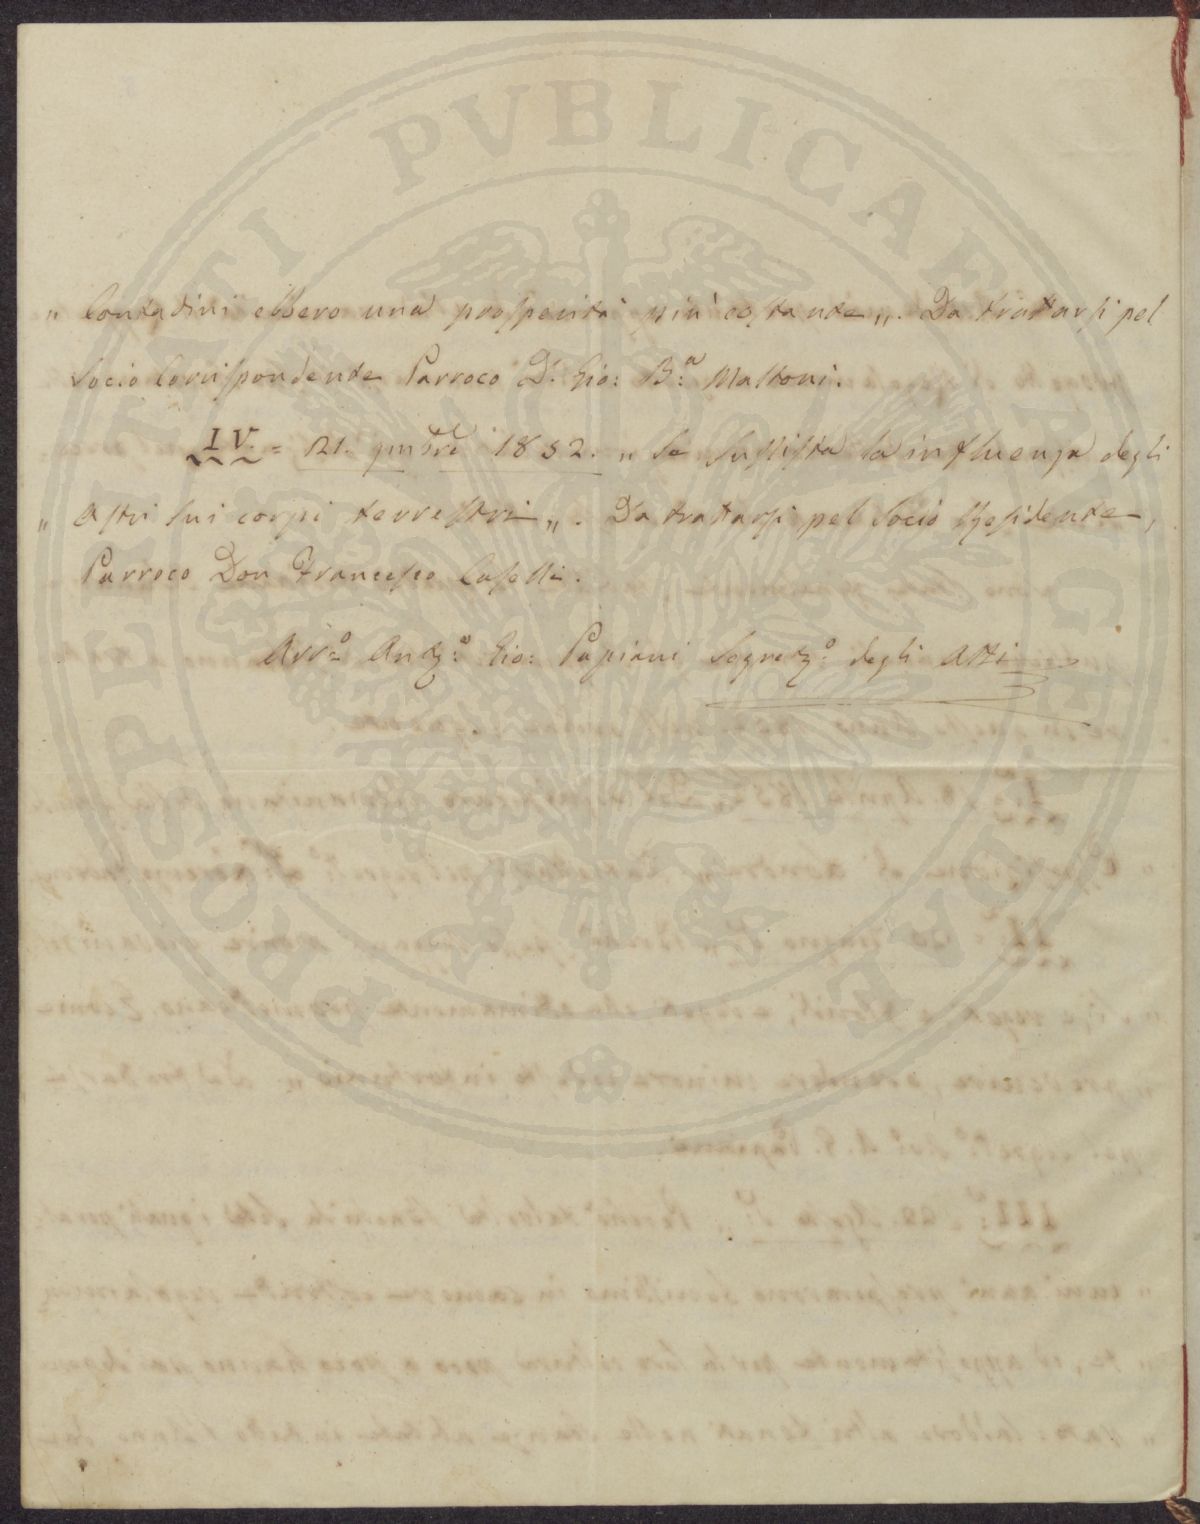 PROSPERITATI PVBLICAE AVGENDAE
„ Contadini ebbero una prosperità più costante „. Da trattarsi pel
Socio Corrispondente Parroco D. Gio: B.a Maltoni.
IV. = 21. 9mbre 1852. „ Se sussista la influenza degli
„ Astri sui corpi terrestri „. Da trattarsi pel Socio Residente,
Parroco Don Francesco Caselli.
Gio: Papiani Segret.o degli Atti